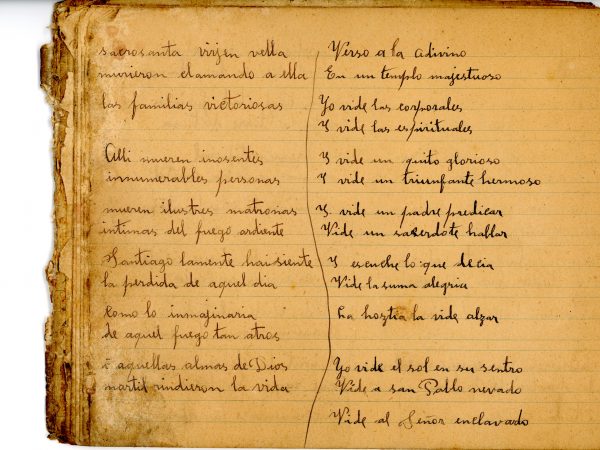 sacrosanta virjen vella
murieron clamando a ella
las familias victoriosas
Alli mueren inosentes
innumerables personas
mueren ilustres matronas
intimas del fuego ardiente
Santiago lamente hai siente
la perdida de aquel dia
como lo inmajinaria
de aquel fuego tan atros
i aquellas almas de Dios
martil rindieron la vida
Verso a la adivino
En un templo majestuoso
Yo vide las corporales
Y vide las espirituales
Y vide un quito glorioso
Y vide un triunfante hermoso
Y vide un padre predicar
Vide un saserdote hablar
Y escuche lo que decia
Vide la suma alegria
La hoztia la vide alzar
Yo vide el sol en su sentro
Vide a san Pablo nevado
Vide al Señor enclavado